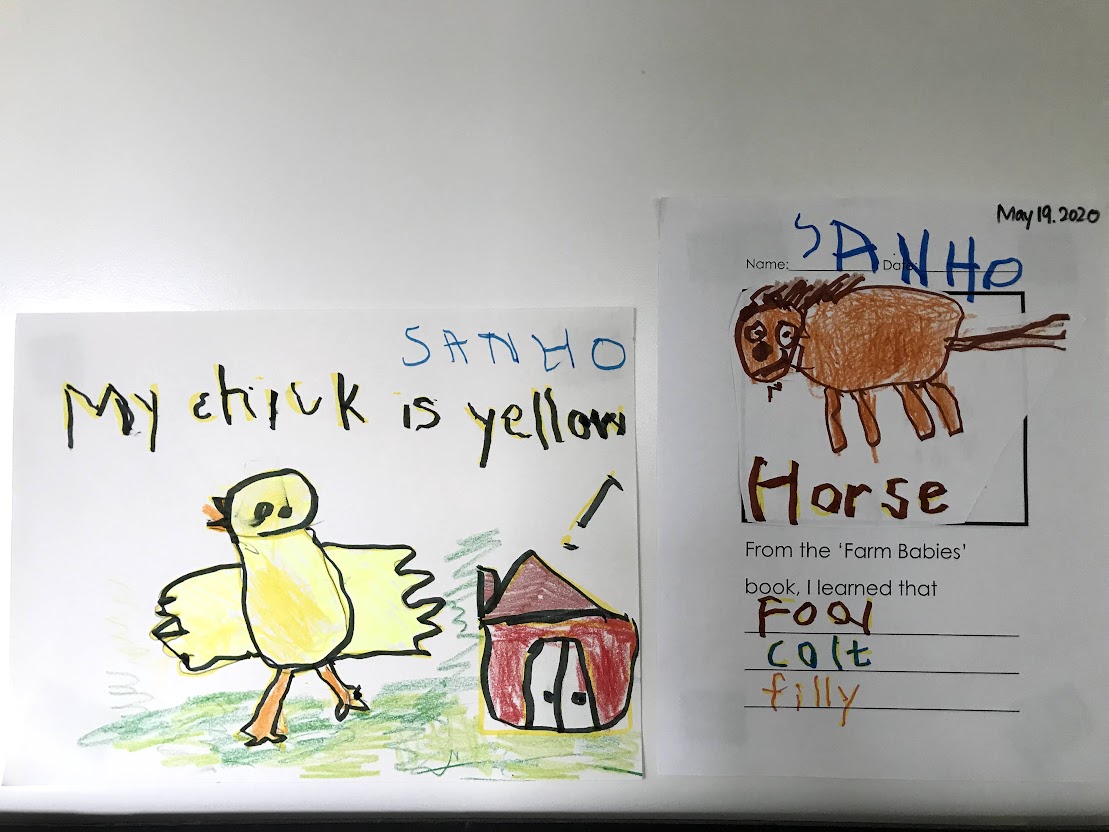 SANHO
My chick is yellow
!
May 19. 2020
SANHO
Name: Date:
Horse
From the 'Farm Babies'
book, I learned that
Foal
colt
filly